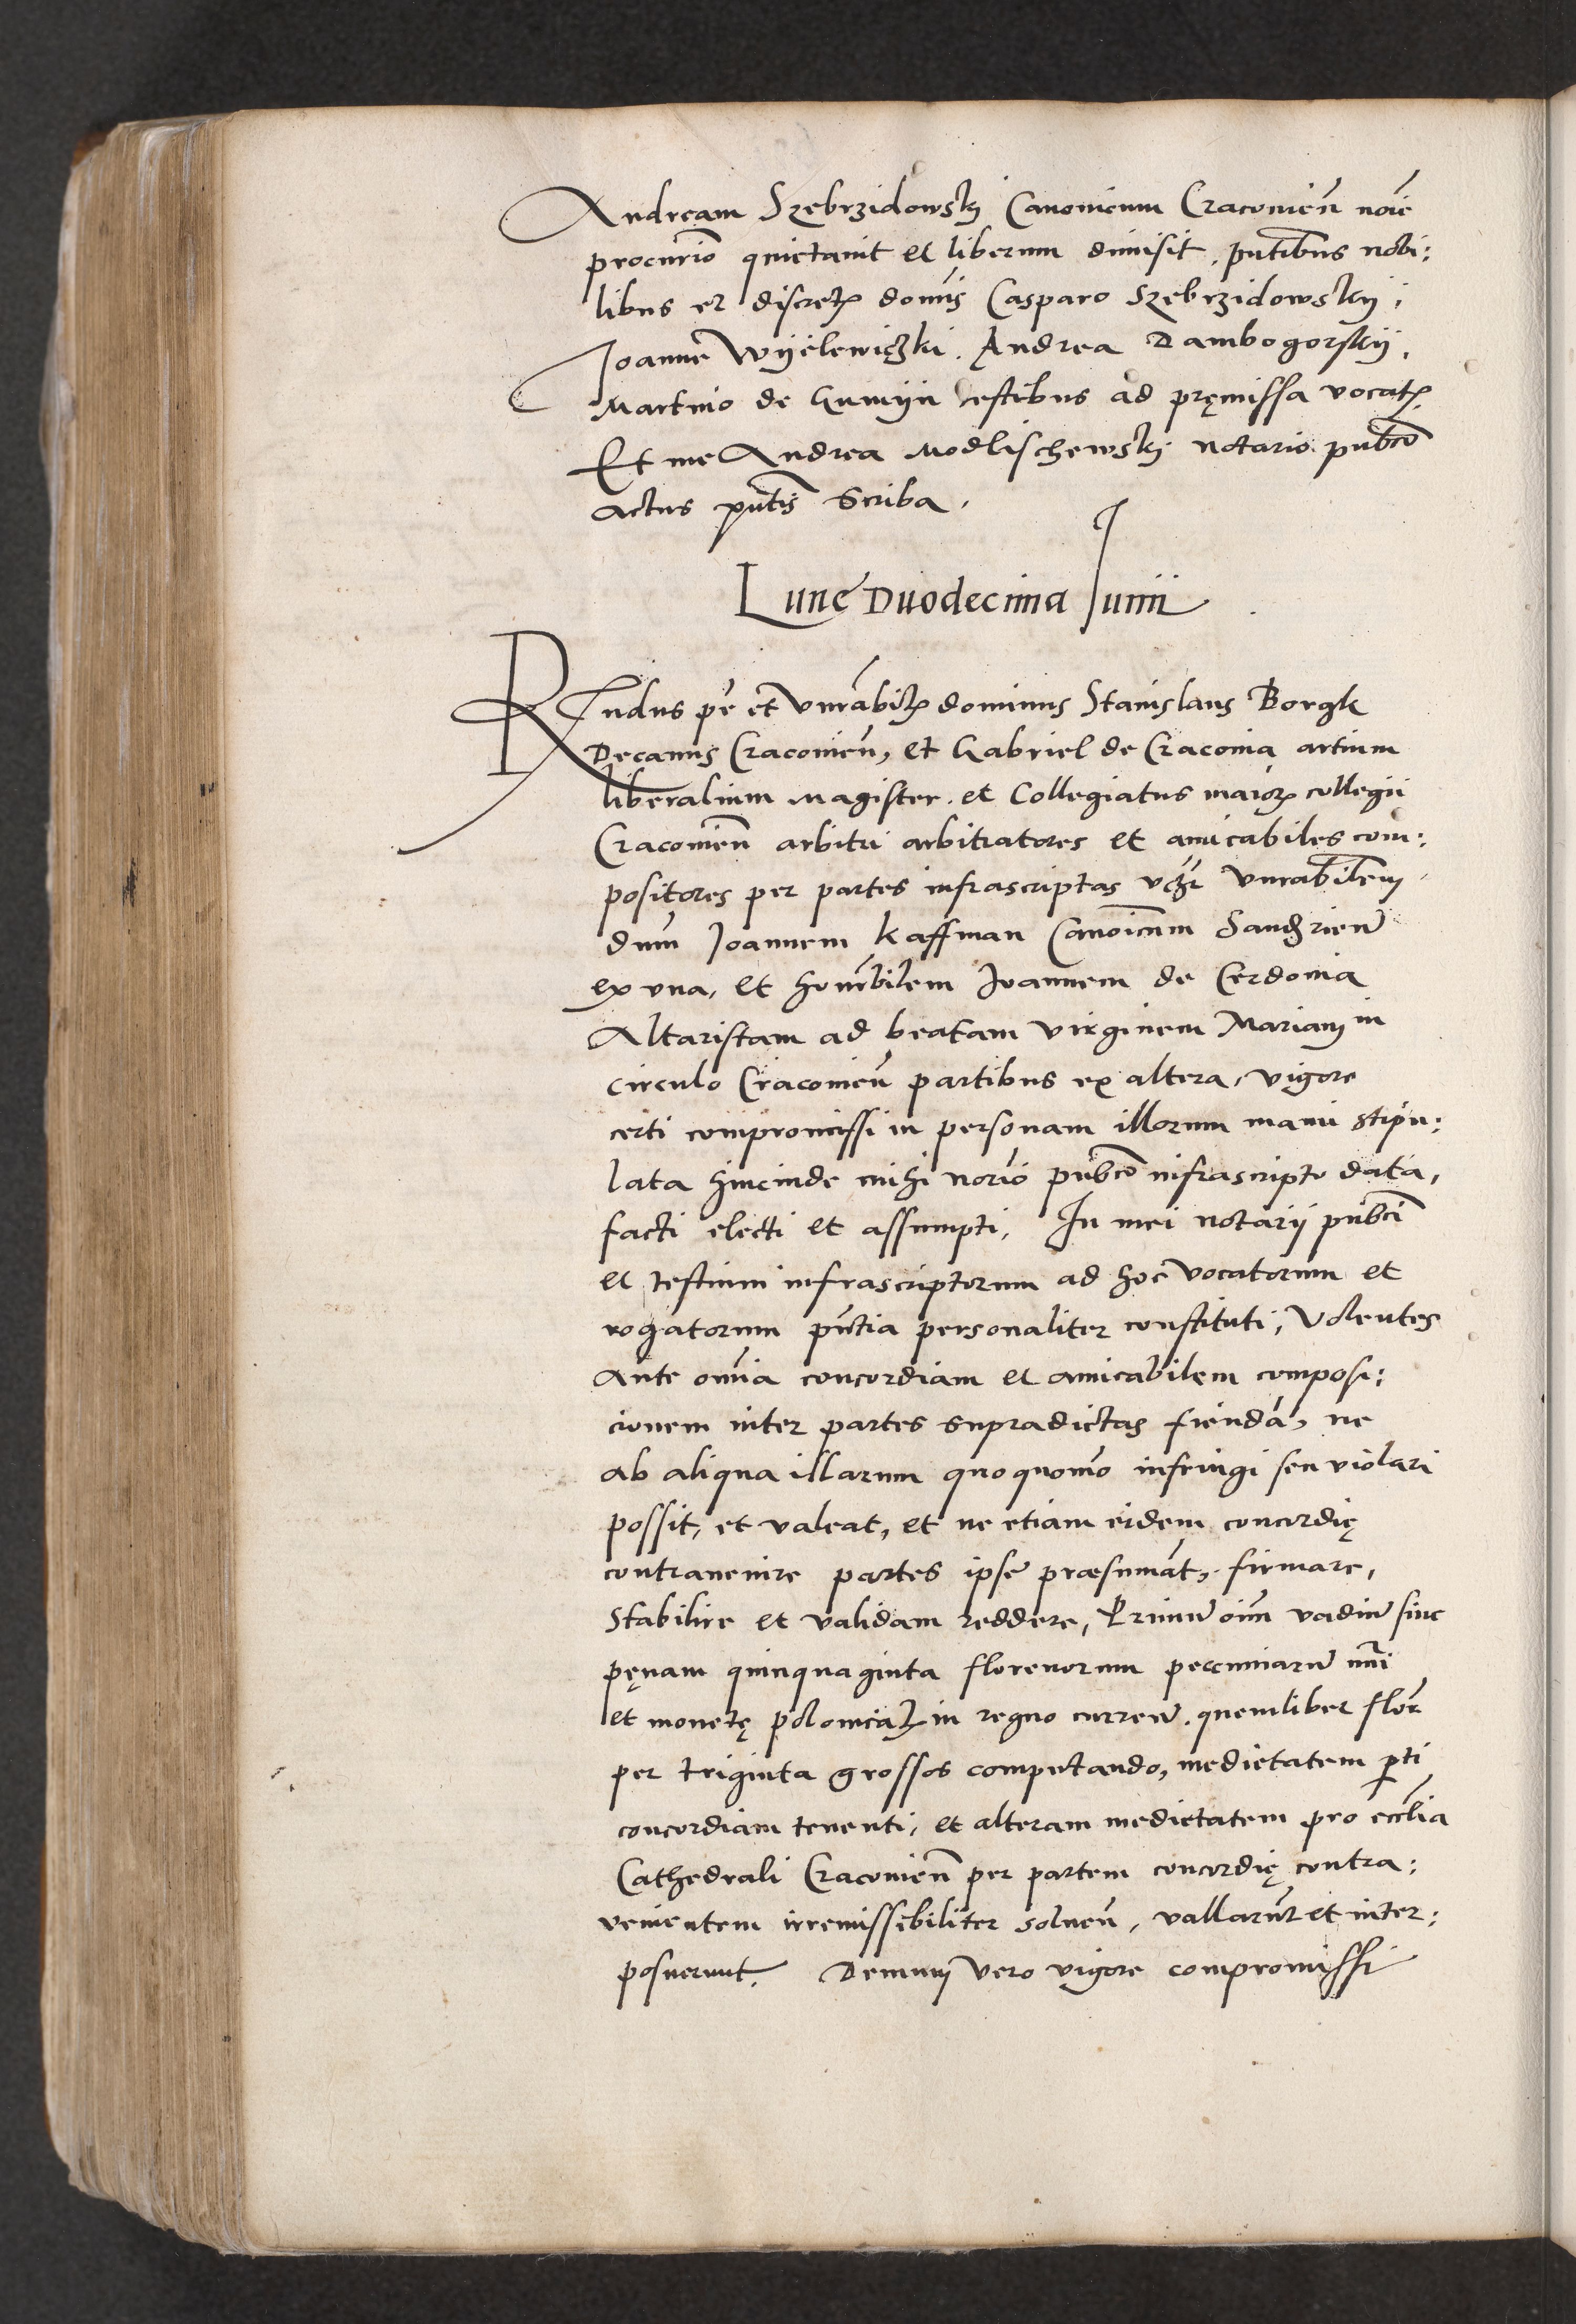 Andream Szebrzidowskj Canonicum Cracovien̄ noīe
procur̄io quietavit et liberum dimisit, pn̄tibus nobi:
libus et discret̄ꝫ domīs Casparo Szebrzidowskij,
Joanne Wyelewiczki. Andrea Dambogorskij,
Martino de Gumijn testibus ad pręmissa vocat̄ꝫ
Et me Andrea Modlischewskj notario pub̄co
actus pn̄tis Scriba.
Lunę Duodecima Junii
Rn̄dus pr̄ et Vn̄rabilꝫ dominus Stanislaus Borgk
Decanus Cracovien̄, et Gabriel de Cracovia artium
liberalium Magister et Collegiatus maiorꝫ collegii
Cracovien̄ arbitri arbitratores et amicabiles com:
positores per partes infrascriptas vꝫ Vn̄rabilem
dn̄m Joannem Kaffman Canoīcum Sandzrien̄
ex una, et hon̄rabilem Joannem de Cerdonia
Altaristam ad beatam virginem Mariam in
circulo Cracovien̄ partibus ex altera, vigore
certi compromissi in personam illorum manu stipu:
lata hincinde mihi nor̄io pub̄co infrascripto data,
facti electi et assumpti, In mei notarij pub̄ci
et testium infrascriptorum ad hoc vocatorum et
rogatorum pn̄tia personaliter constituti, Volentes
ante omīa concordiam et amicabilem composi:
cionem inter partes supradictas fiendā, ne
ab aliqua illarum quoquom̄o infringi seu violari
possit, et valeat, et ne etiam eidem concordię
contravenire partes ipse præsumāt, firmare,
Stabilire et validam reddere, Primū oīm vadiū sive
pęnam quinquaginta florenorum pecuniarū nr̄i
et monetę polonicalꝫ in regno curren̄. quemlibet flor̄
per triginta grossos computando, medietatem pr̄ti
concordiam tenenti, et alteram medietatem pro eccl̄ia
Cathedrali Cracovien̄ per partem concordię contra:
venientem irremissibiliter solven̄, vallarūt et inter:
posuerunt. Demum vero vigore compromissi